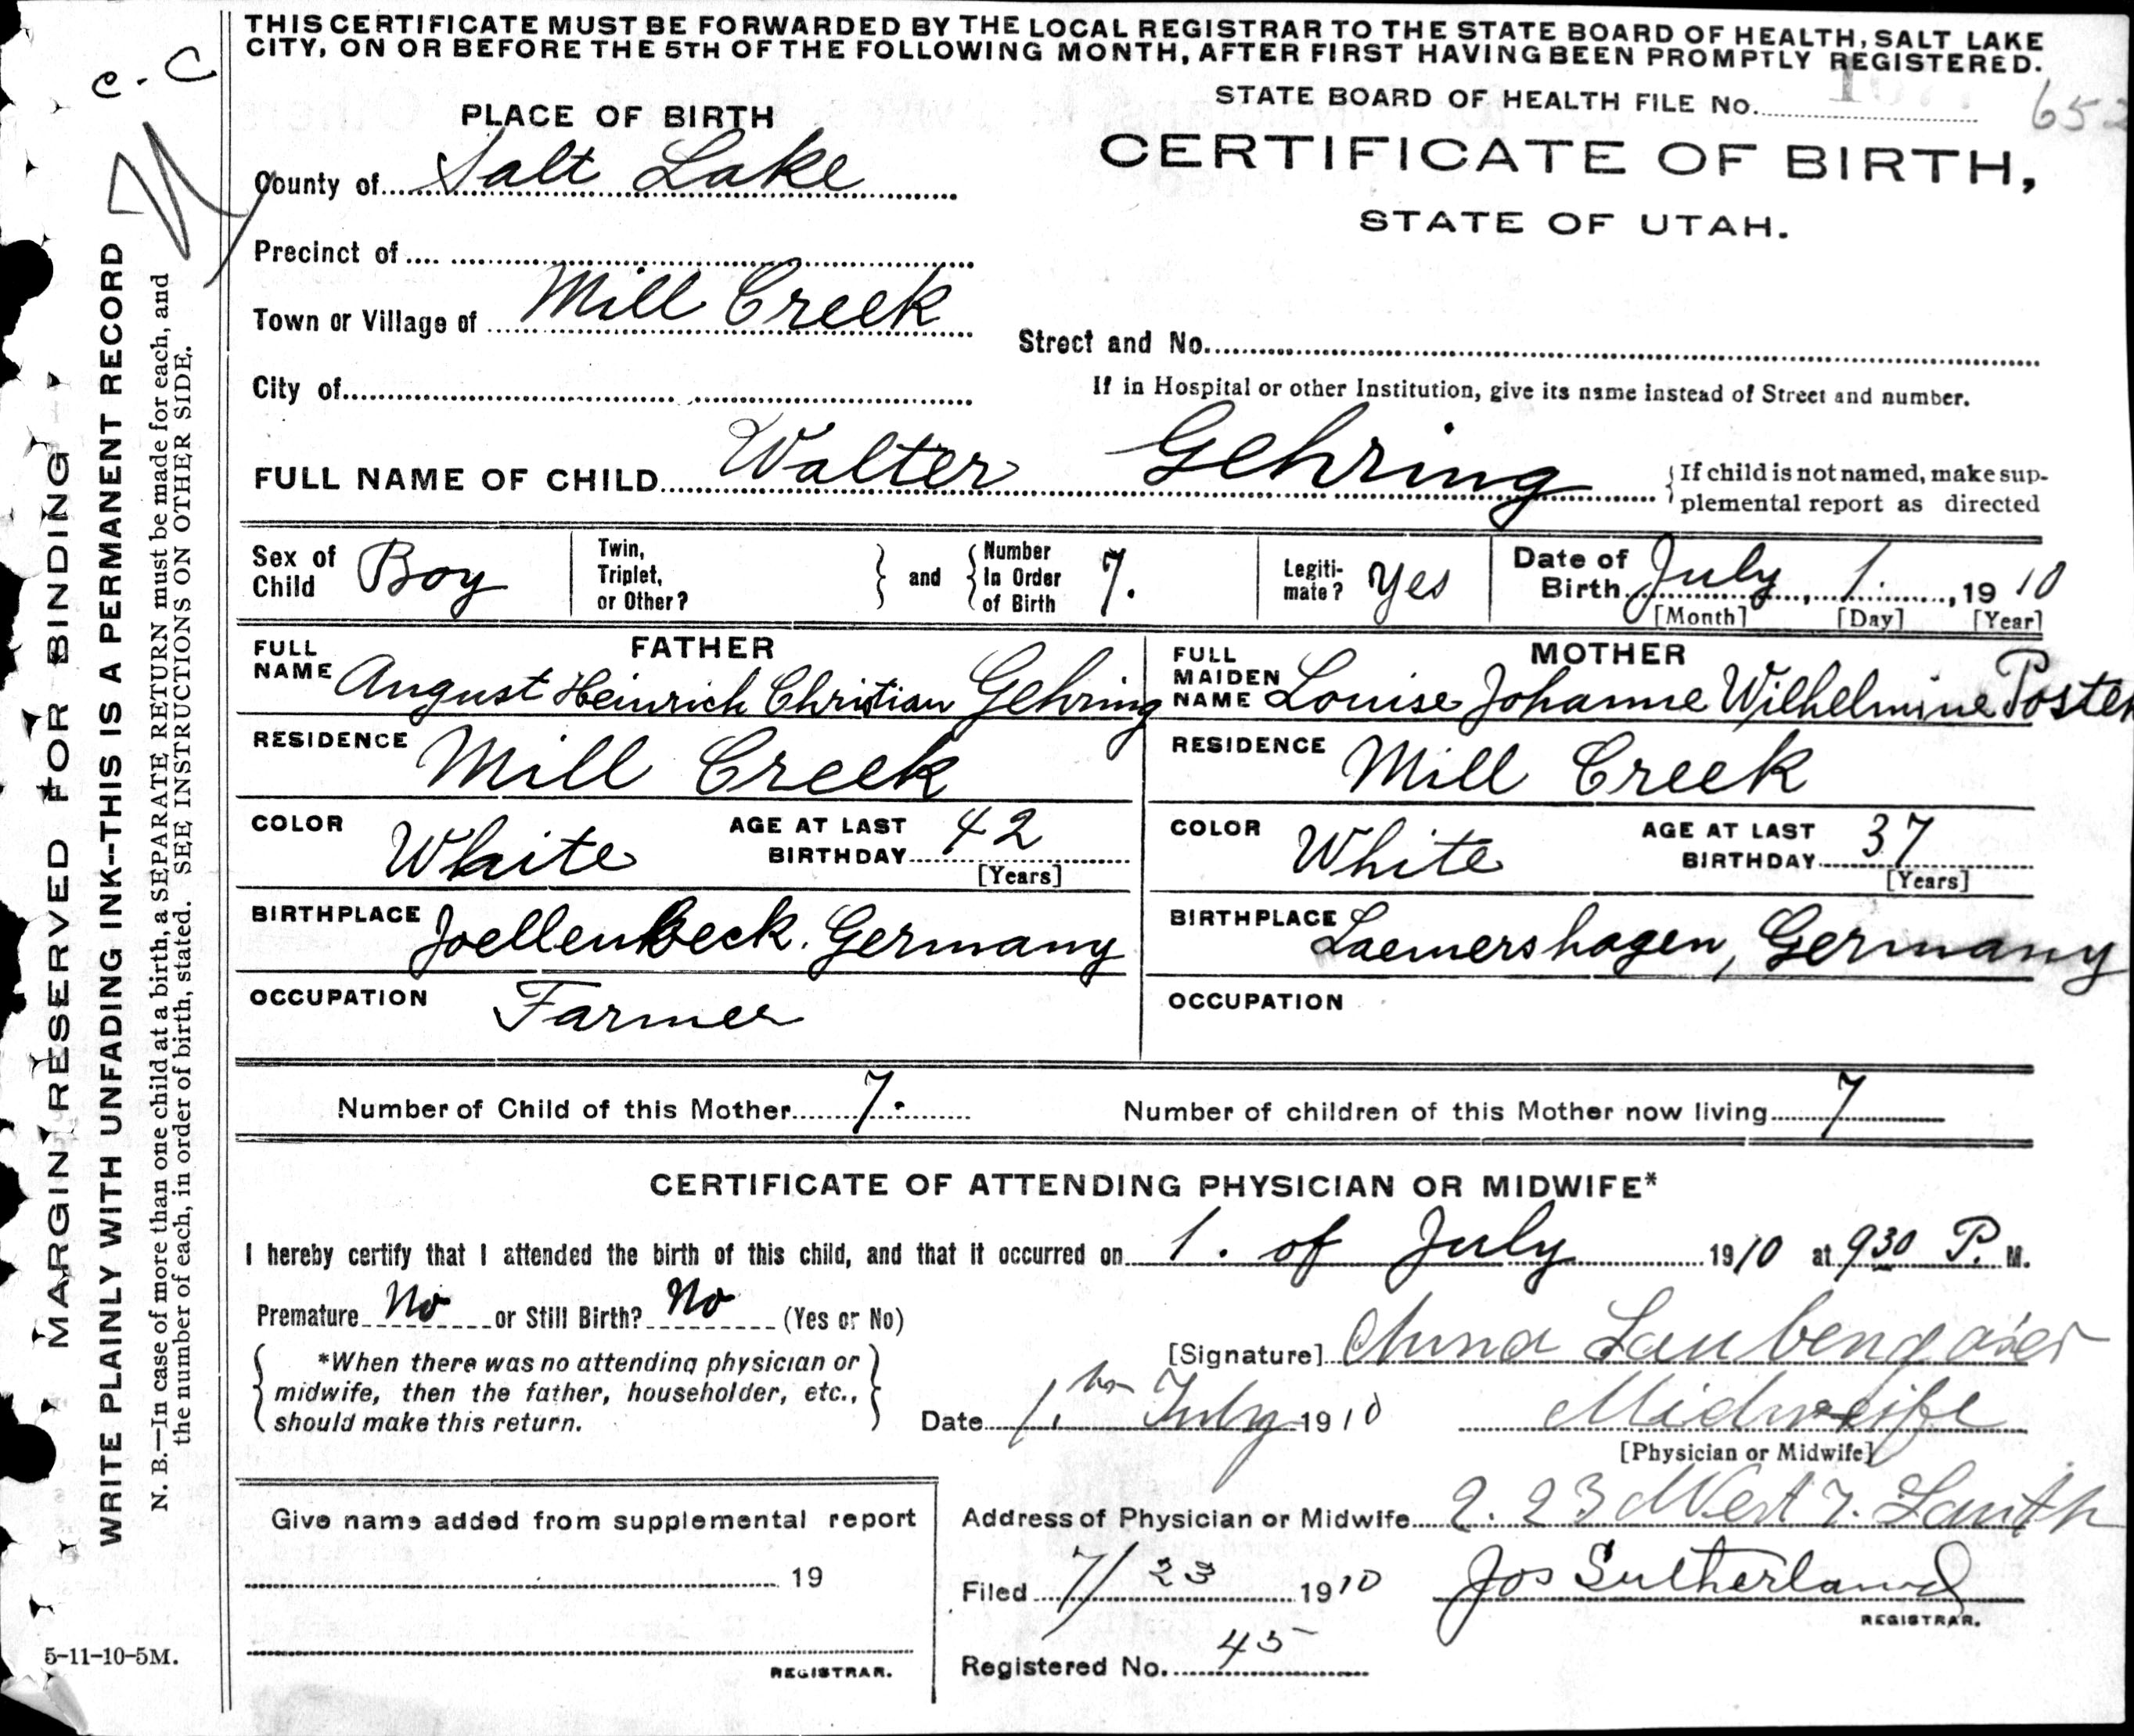 THIS CERTIFICATE MUST BE FORWARDED BY THE LOCAL REGISTRAR TO THE STATE BOARD OF HEALTH, SALT LAKE
CITY, ON OR BEFORE THE 5TH OF THE FOLLOWING MONTH, AFTER FIRST HAVING BEEN PROMPTLY REGISTERED.
c-c
STATE BOARD OF HEALTH FILE No. 652
PLACE OF BIRTH
CERTIFICATE OF BIRTH,
STATE OF UTAH.
County of Salt Lake
Precinct of
Town or Village of Mill Creek
Street and No.
City of
If in Hospital or other Institution, give its name instead of Street and number.
FULL NAME OF CHILD Walter Gehring
If child is not named, make sup-
plemental report as directed
Sex of Child Boy
Twin, Triplet, or Other?
and Number In Order of Birth 7.
Legiti-mate? Yes
Date of Birth July 1., 1910
[Month] [Day] [Year]
FATHER
FULL NAME August Heinrich Christian Gehring
MOTHER
FULL MAIDEN NAME Louise Johanne Wilhelmine Posten
RESIDENCE Mill Creek
RESIDENCE Mill Creek
COLOR White AGE AT LAST BIRTHDAY 42 [Years]
COLOR White AGE AT LAST BIRTHDAY 37 [Years]
BIRTHPLACE Joellenbeck. Germany
BIRTHPLACE Laemershagen, Germany
OCCUPATION Farmer
OCCUPATION
Number of Child of this Mother 7.
Number of children of this Mother now living 7
CERTIFICATE OF ATTENDING PHYSICIAN OR MIDWIFE*
I hereby certify that I attended the birth of this child, and that it occurred on 1. of July 1910 at 930 P. M.
Premature No or Still Birth? No (Yes or No)
*When there was no attending physician or
midwife, then the father, householder, etc.,
should make this return.
[Signature] Anna Laubengaier
Date 1. July 1910
Midweife
[Physician or Midwife]
Give name added from supplemental report
19
REGISTRAR.
Address of Physician or Midwife 2.23 West 7. South
Filed 7/23 1910 Jos Sutherland
REGISTRAR.
Registered No. 45
5-11-10-5M.
MARGIN RESERVED FOR BINDING
WRITE PLAINLY WITH UNFADING INK--THIS IS A PERMANENT RECORD
N. B.—In case of more than one child at a birth, a SEPARATE RETURN must be made for each, and
the number of each, in order of birth, stated. SEE INSTRUCTIONS ON OTHER SIDE.